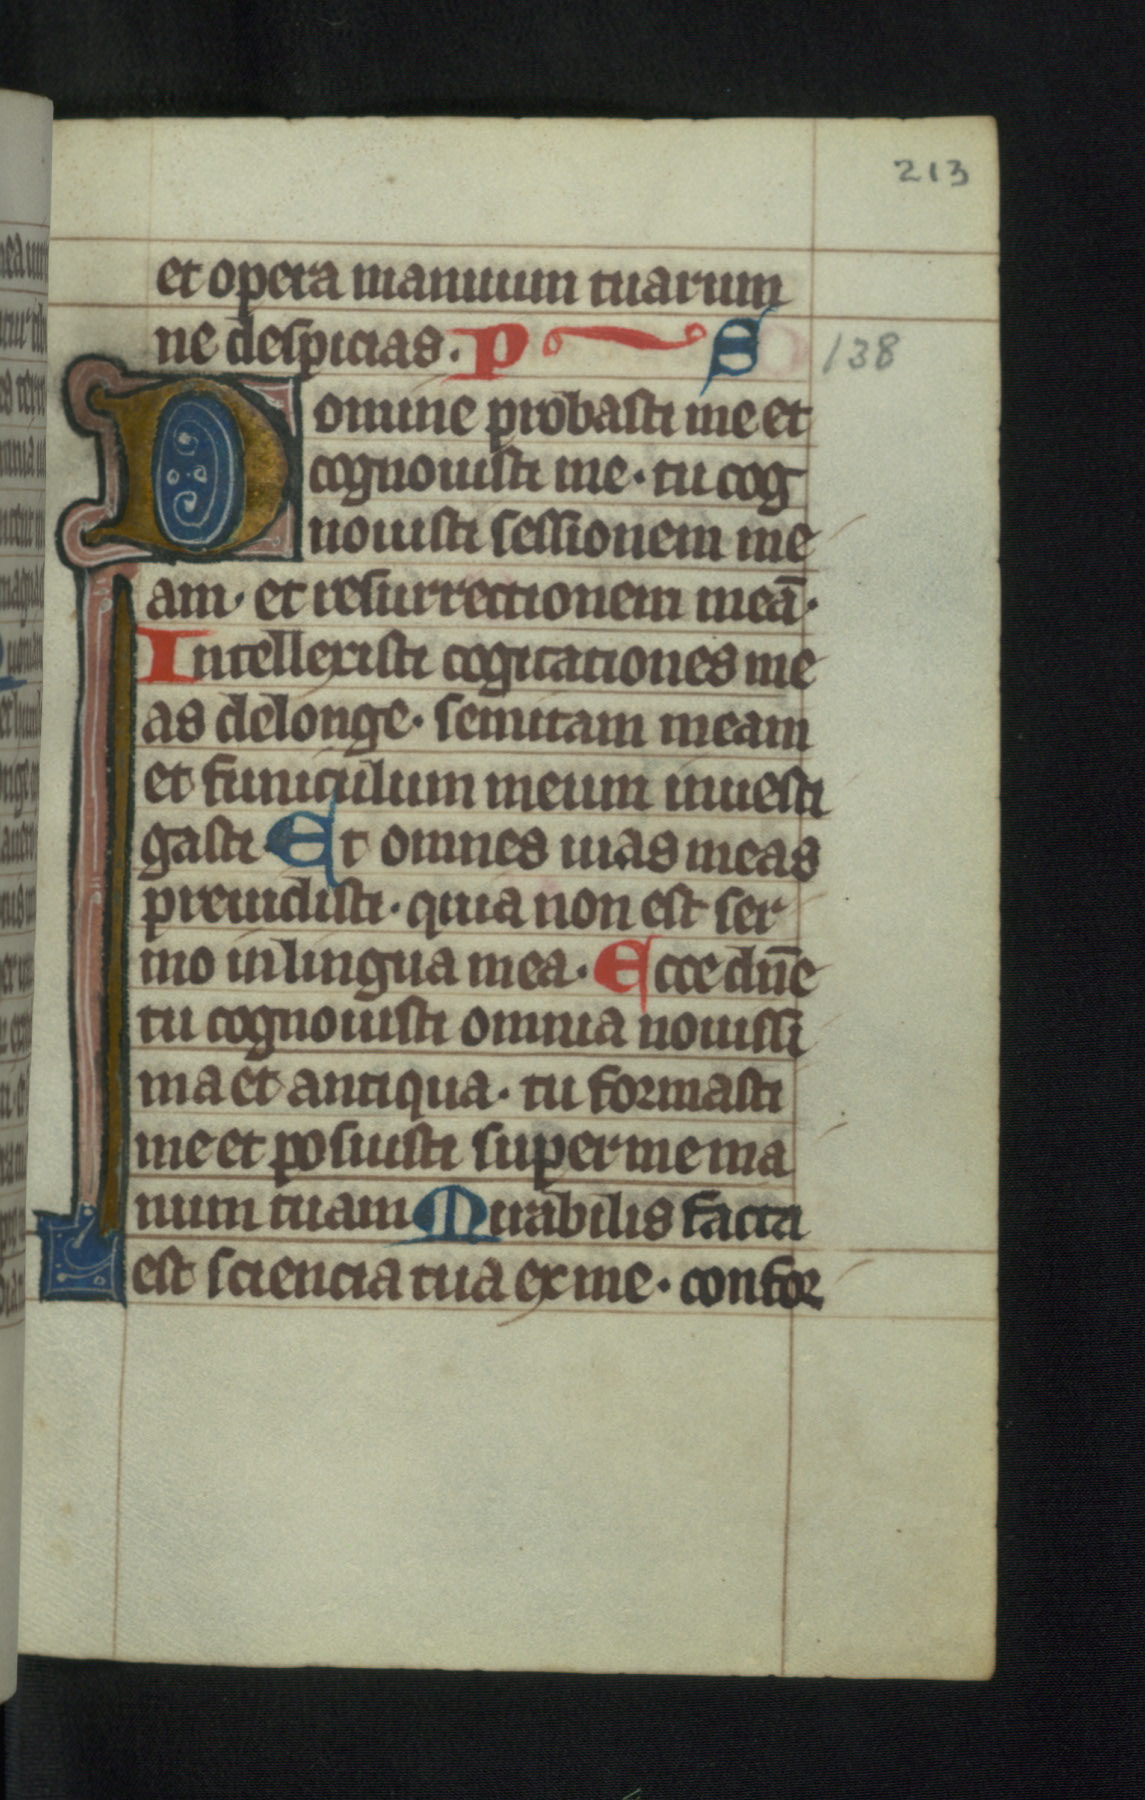 213
et opera manuum tuarum
ne despicias. P S
138
Domine probasti me et
cognouisti me. tu cog
nouisti sessionem me
am. et resurrectionem meā.
Intellexisti cogitationes me
as delonge. semitam meam
et funiculum meum inuesti
gasti Et omnes uias meas
preuidisti. quia non est ser
mo in lingua mea. Ecce dn̄e
tu cognouisti omnia nouissi
ma et antiqua. tu formasti
me et posuisti super me ma
num tuam Mirabilis facta
est sciencia tua ex me. confor